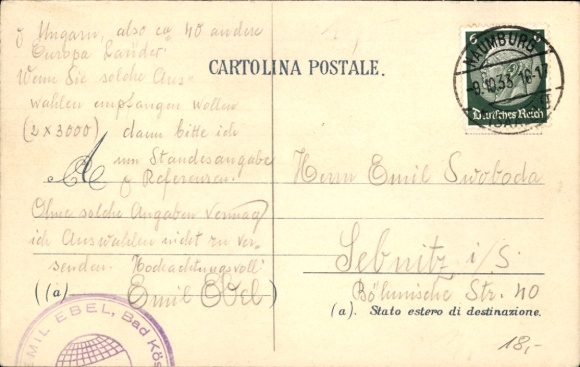 y Ungarn, also ca 40 andere
Europa Länder.
Wenn Sie solche Aus-
wahlen empfangen wollen
(2 x 3000) dann bitte ich
um Standesangabe
y Referenzen.
Ohne solche Angaben vermag
ich Auswahlen nicht zu ver-
senden. Hochachtungsvoll:
((a) Emil Ebel)
EMIL EBEL, Bad Kös
CARTOLINA POSTALE.
6
NAUMBURG
-9.10.33 16-17
(SAALE)
Deutsches Reich
Herrn Emil Swoboda
Sebnitz i/S.
Böhmische Str. 40
(a). Stato estero di destinazione.
18,-